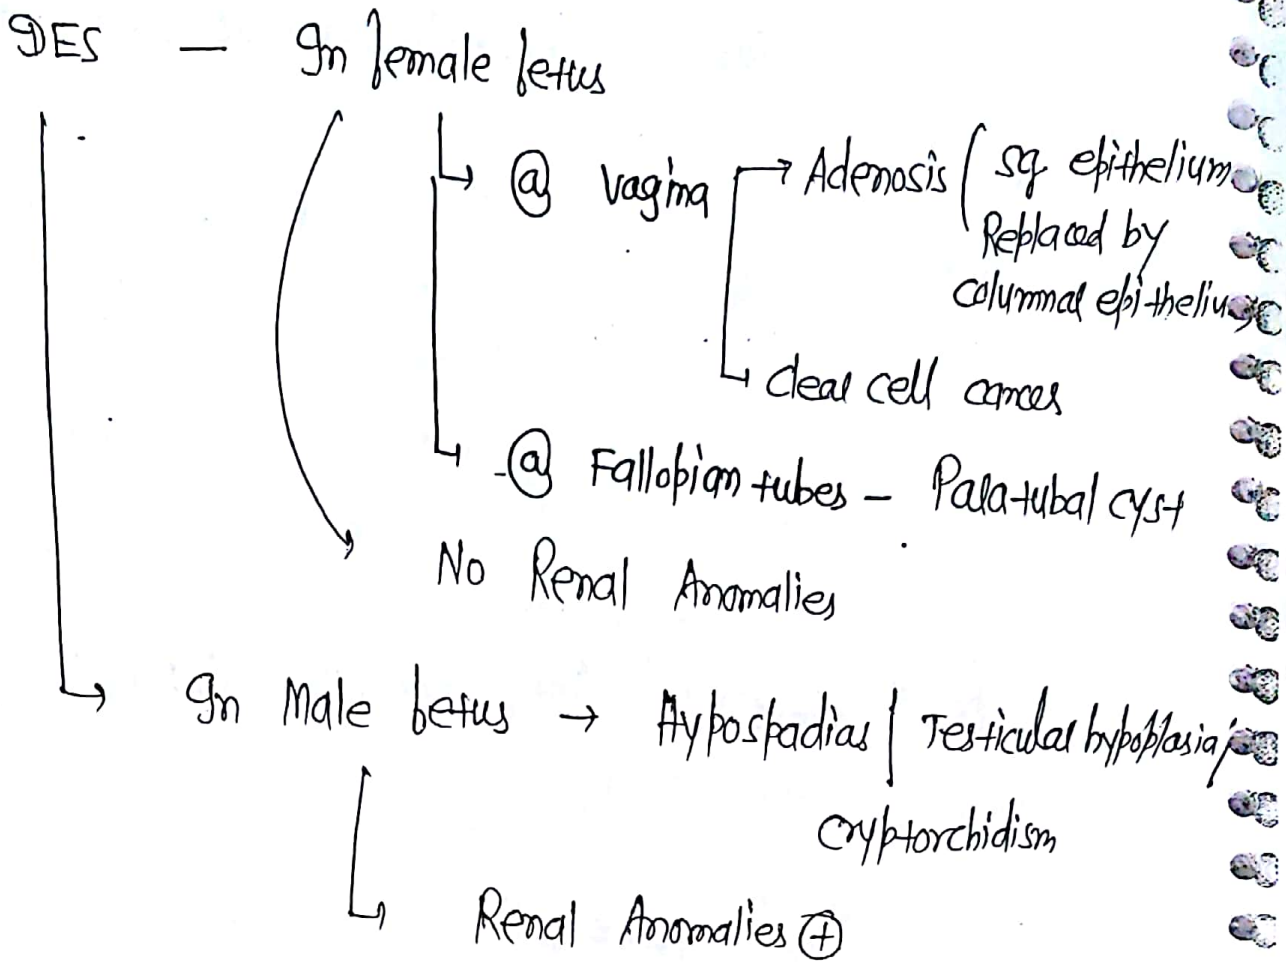 DES — In female fetus
@ vagina → Adenosis ( sq. epithelium
Replaced by
columnar epithelium
clear cell cancer
@ Fallopian tubes - Paratubal cyst
No Renal Anomalies
In Male fetus → Hypospadias / Testicular hypoplasia /
cryptorchidism
Renal Anomalies ⊕